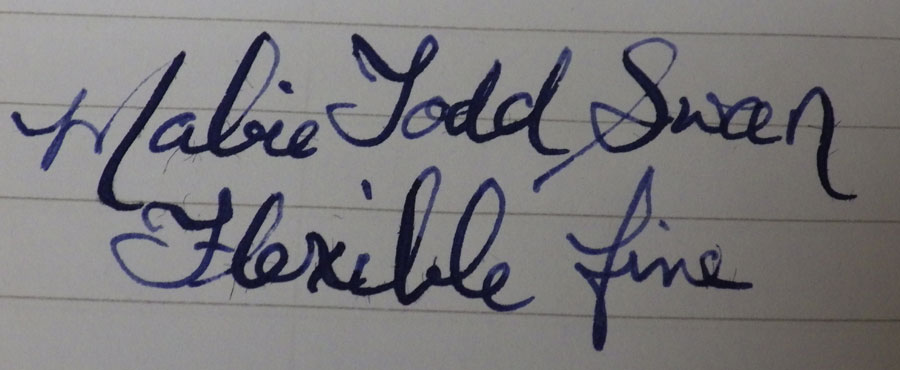 Mabie Todd Swan
Flexible fine